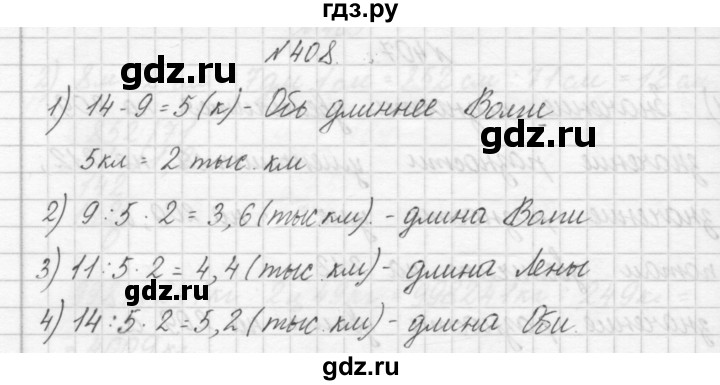 гдз.ру
№408.
1) 14-9=5(к)-Обь длиннее Волги
5кл = 2 тыс. км
2) 9:5·2=3,6(тыс км).-длина Волги
3) 11:5·2=4,4(тыс. км)-длина Лены
4) 14:5·2=5,2(тыс. км)-длина Оби.
gdz.ru
gdz.ru
gdz.ru
gdz.ru
gdz.ru
gdz.ru